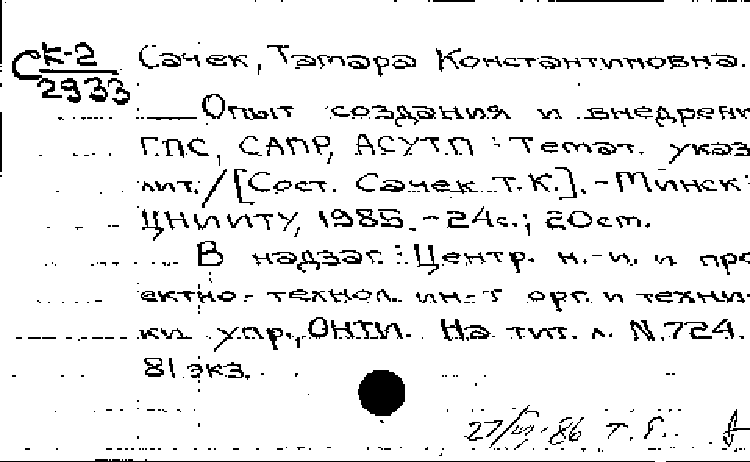 СК-2
2933
Сачек, Тамара Константиновна.
Опыт создания и внедрени
ГПС, САПР, АСУТП : Темат. указ
лит. / [Сост. Сачек Т.К.]. - Минск :
ЦНИИТУ, 1985. - 24с.; 20см.
В надзаг.: Центр. н.-и. и про
ектно-технол. ин-т орг. и техни
ки упр., ОНТИ. На тит. л. N.724.
81 экз.
86 т.